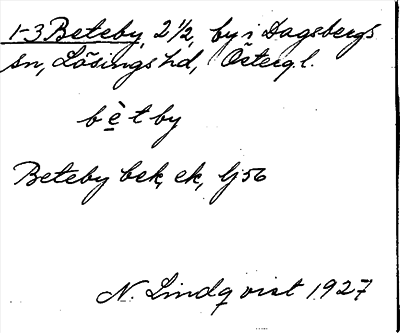 1-3 Beteby, 2 1/2, by i Dagsbergs
sn, Lösings hd, Östergl.
bètby
Beteby bek, ek, lj 56
N. Lindqvist 1927